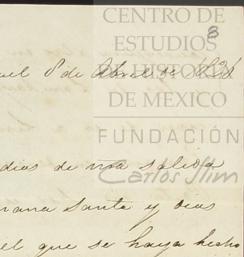 CENTRO DE
ESTUDIOS
DE HISTORIA
DE MEXICO
8
uel 8 de Abril de
FUNDACIÓN
dias de mi salida
Carlos Slim
mana Santa y dias
el que se haya hecho